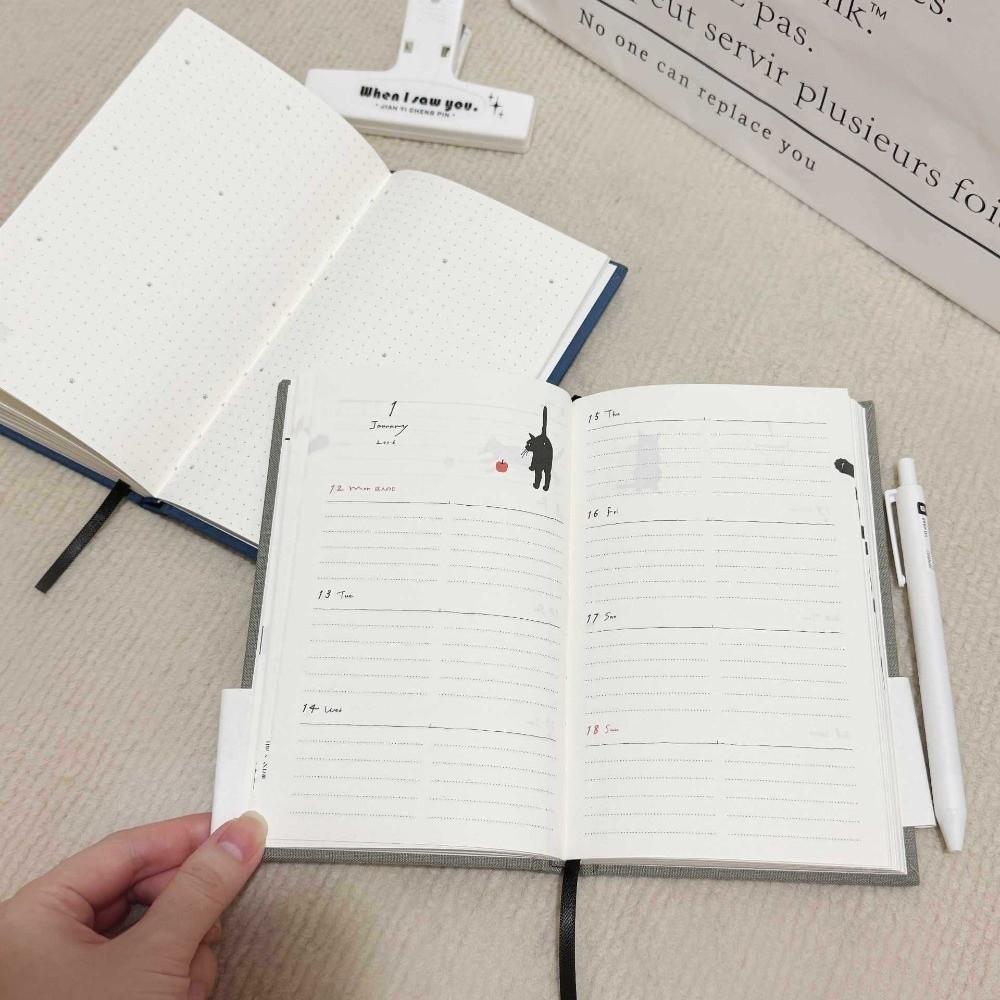 When I saw you.
JIAN YI CHENG PIN
es.
nk.™
pas.
eut servir plusieurs fois
No one can replace you
1
January
12 Mon
13 Tue
14 Wed
15 Thu
16 Fri
17 Sat
18 Sun